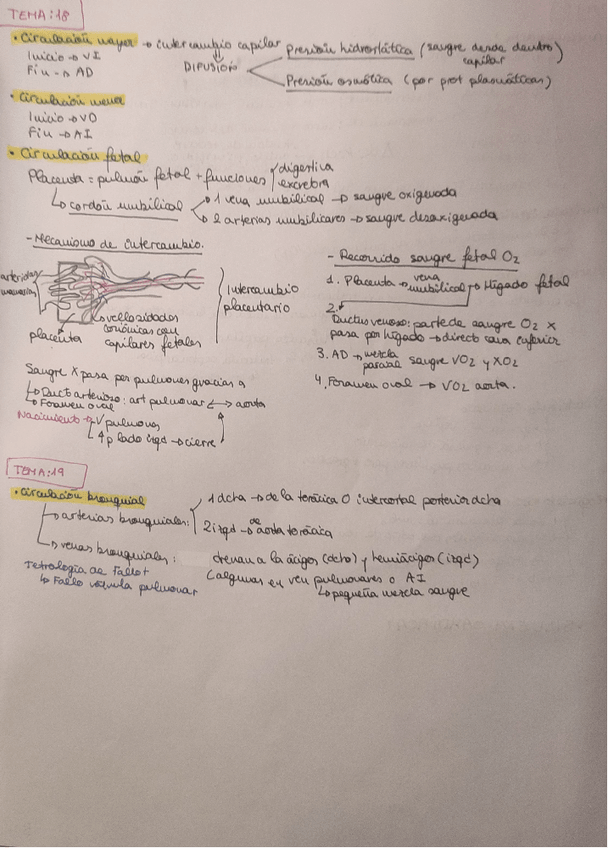 TEMA:18
• Circulación mayor → intercambio capilar
Inicio → VI
Fin → AD
⇓
DIFUSIÓN
Presión hidrostática (sangre desde dentro) capilar
Presión osmótica (por prot plasmáticas)
• Circulación menor
Inicio → VD
Fin → AI
• Circulación fetal
Placenta = pulmón fetal + funciones
digestiva
excretora
↳ cordón umbilical
1 vena umbilical → sangre oxigenada
2 arterias umbilicares → sangre desoxigenada
- Mecanismo de intercambio.
arterias
placenta
vellosidades
coriónicas con
capilares fetales
Intercambio
placentario
Sangre X pasa por pulmones gracias a
↳ Duct arterioso: art pulmonar ↔ aorta
↳ Foramen oval
Nacimiento → V pulmones
↳ ↑p lado izqd → cierre
- Recorrido sangre fetal O2
1. Placenta → vena umbilical → Hígado fetal
2.
Ductus venoso: parte de sangre O2 X
pasa por hígado → directo cava inferior
3. AD → mezcla parcial sangre VO2 y XO2
4. Foramen oval → VO2 aorta.
TEMA:19
• Circulación bronquial
→ arterias bronquiales:
1 dcha → de la torácica O intercostal posterior dcha
2 izqd → de aorta torácica
→ venas bronquiales:
drenan a la ácigos (dcho) y hemiácigos (izqd)
(algunas en ven pulmonares o AI
↳ pequeña mezcla sangre
Tetralogía de Fallot
↳ Fallo válvula pulmonar